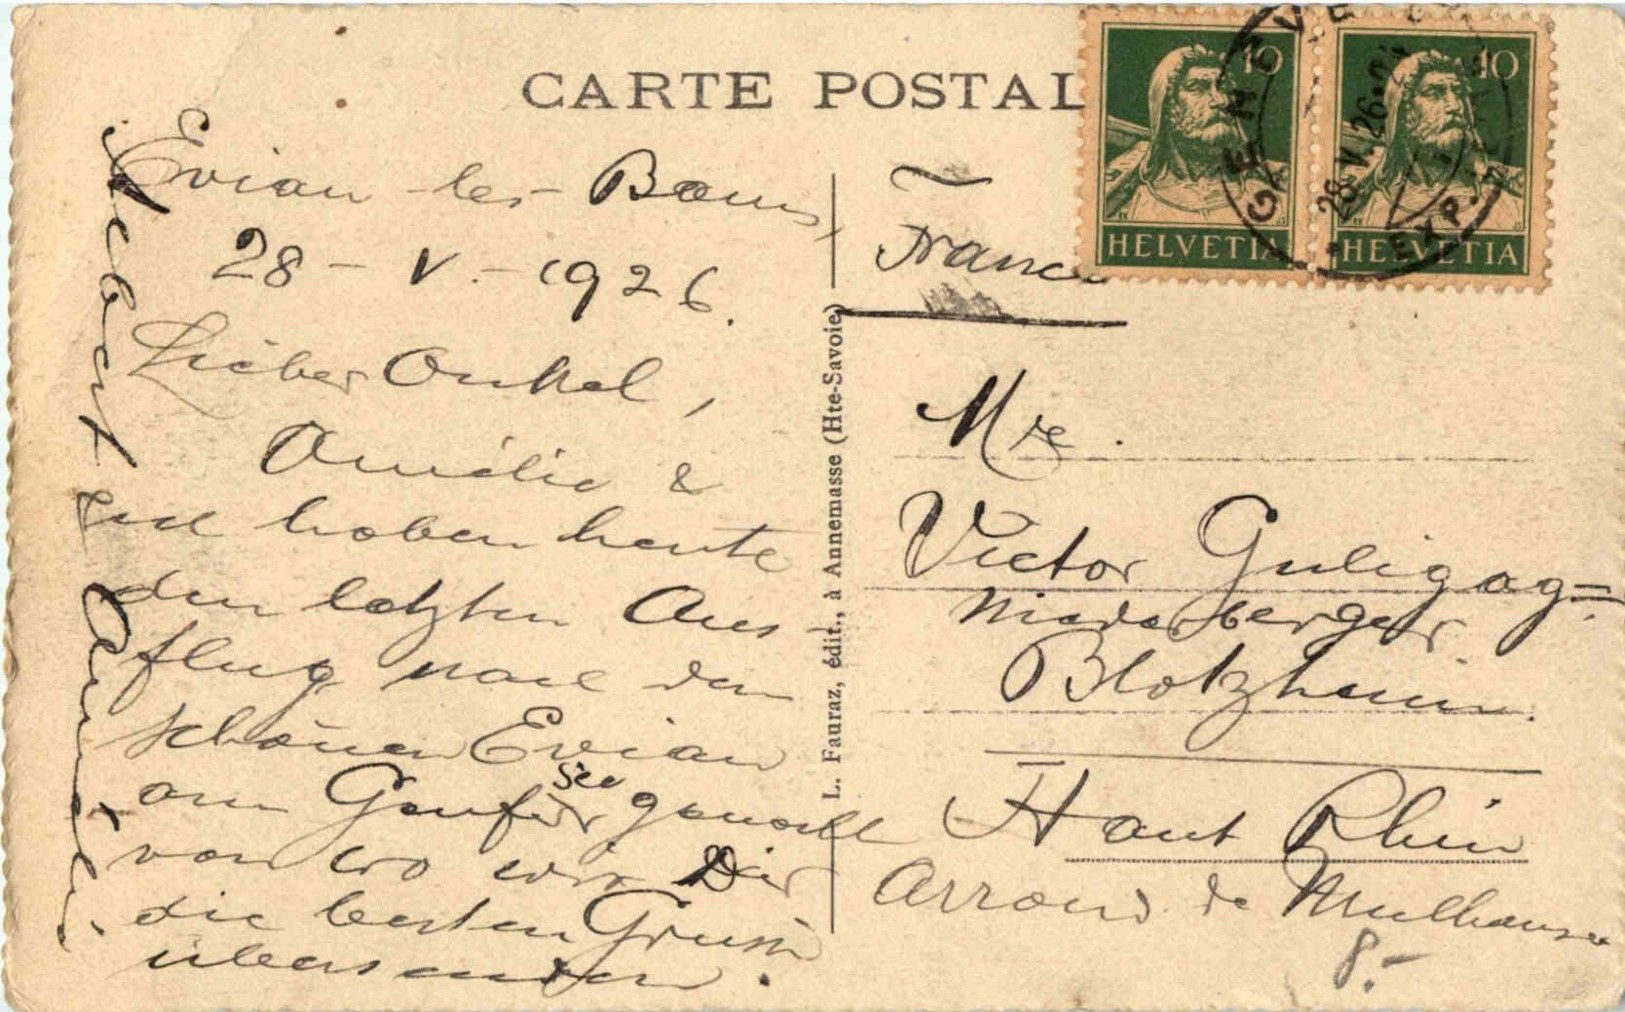 CARTE POSTAL
Evian-les-Bains,
28-V.-1926.
Lieber Onkel,
Amélie &
haben heute
den letzten Aus-
flug nach dem
schönen Evian
am Genfer see gemacht
von wo wir Dir
die besten Grüsse
übersenden.
Albert und Amélie.
L. Fauraz, édit., à Annemasse (Hte-Savoie)
France
10
HELVETIA
10
HELVETIA
GENÈVE
28.V.26
EXP.
Victor
Niederberger
Blotzheim.
Haut Rhin
Arrond. de Mulhouse
8.-